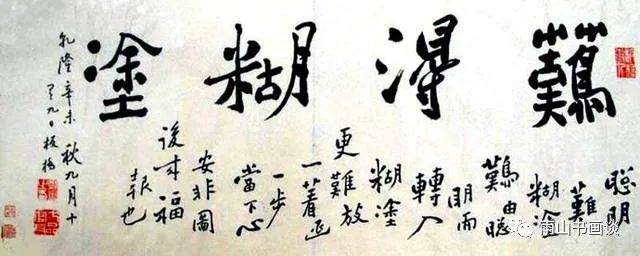 難得糊塗
聰明
難
糊塗
難由聰
明而
轉入
糊塗
更難放
一著退
一步
當下心
安非圖
後來福
報也
乾隆辛未秋九月十
九日板橋
雨山书画谈